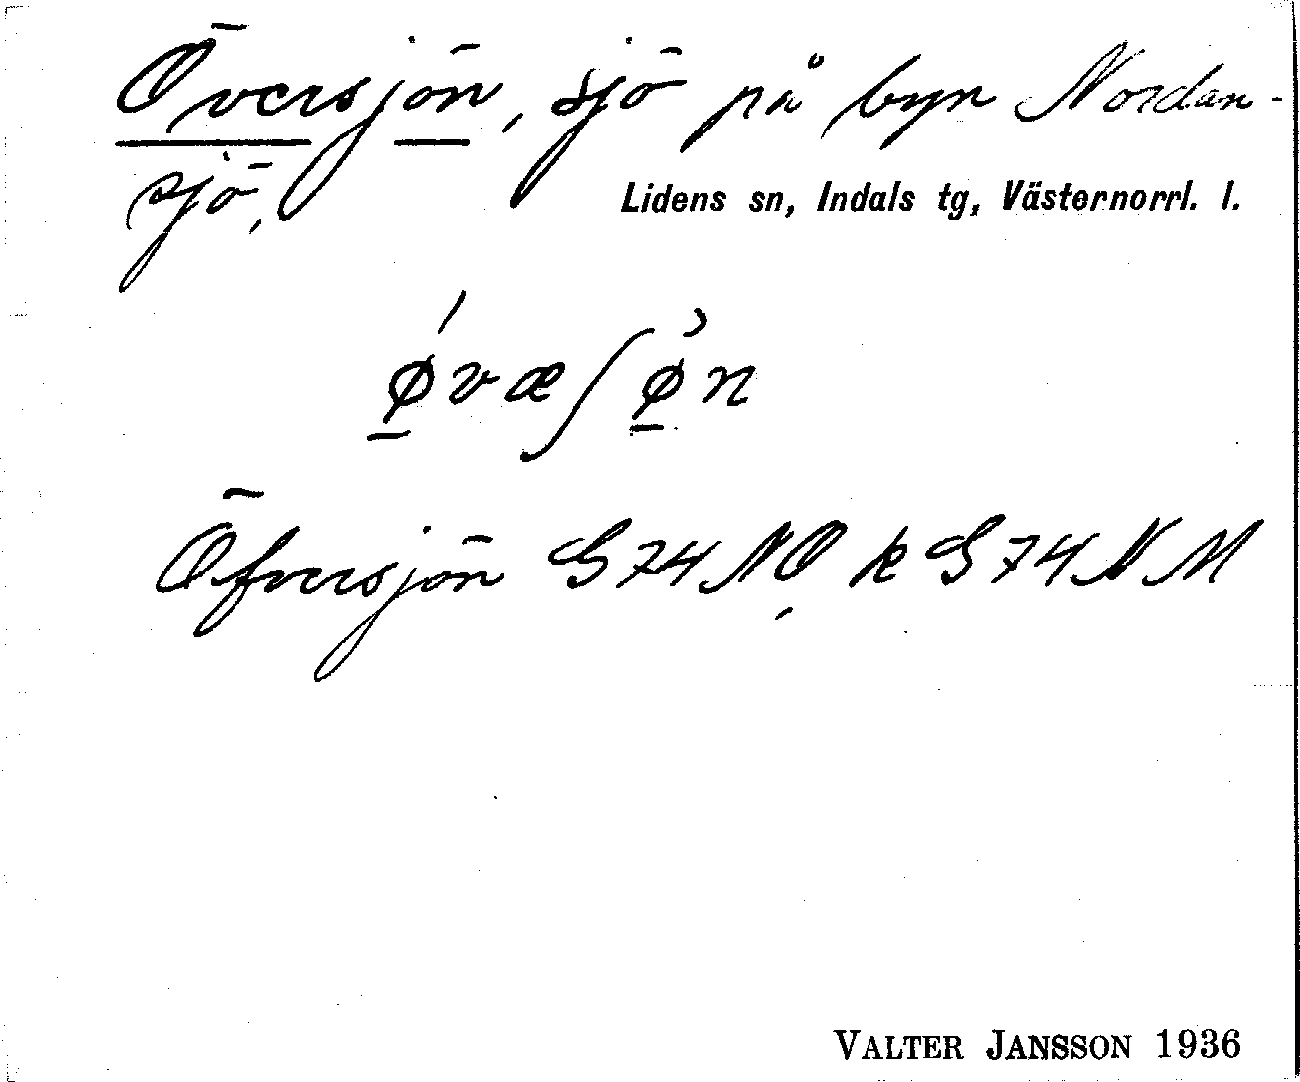 Översjön, sjö på byn Nordan-
sjö,
Lidens sn, Indals tg, Västernorrl. l.
ǿvæʃøn
Öfversjön G74NO, k G74NM
VALTER JANSSON 1936